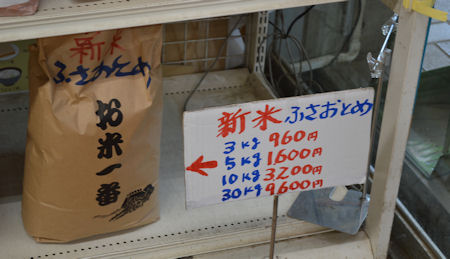 新米
ふさおとめ
お米一番
新米 ふさおとめ
3kg 960円
5kg 1600円
10kg 3,200円
30kg 9,600円